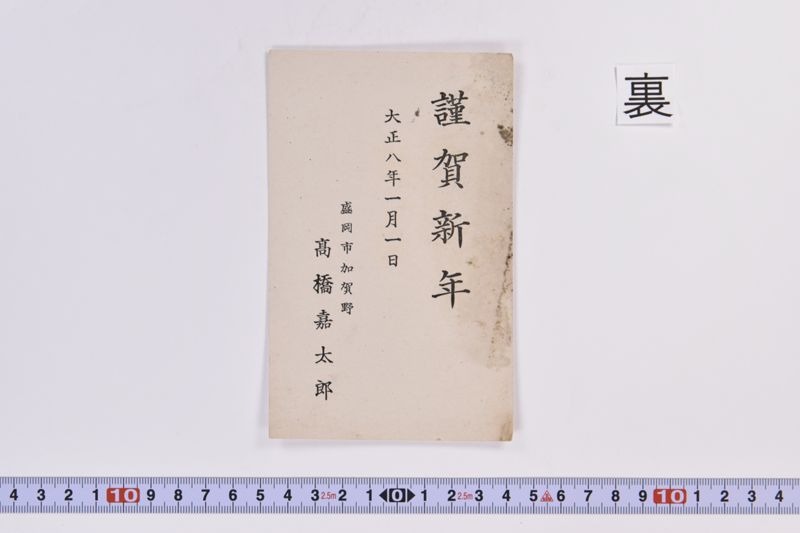 謹賀新年
大正八年一月一日
盛岡市加賀野
高橋嘉太郎
裏
4 3 2 1 10 9 8 7 6 5 4 3 2.5m 2 1 0 1 2 2.5m 3 4 5 6 7 8 9 10 1 2 3 4